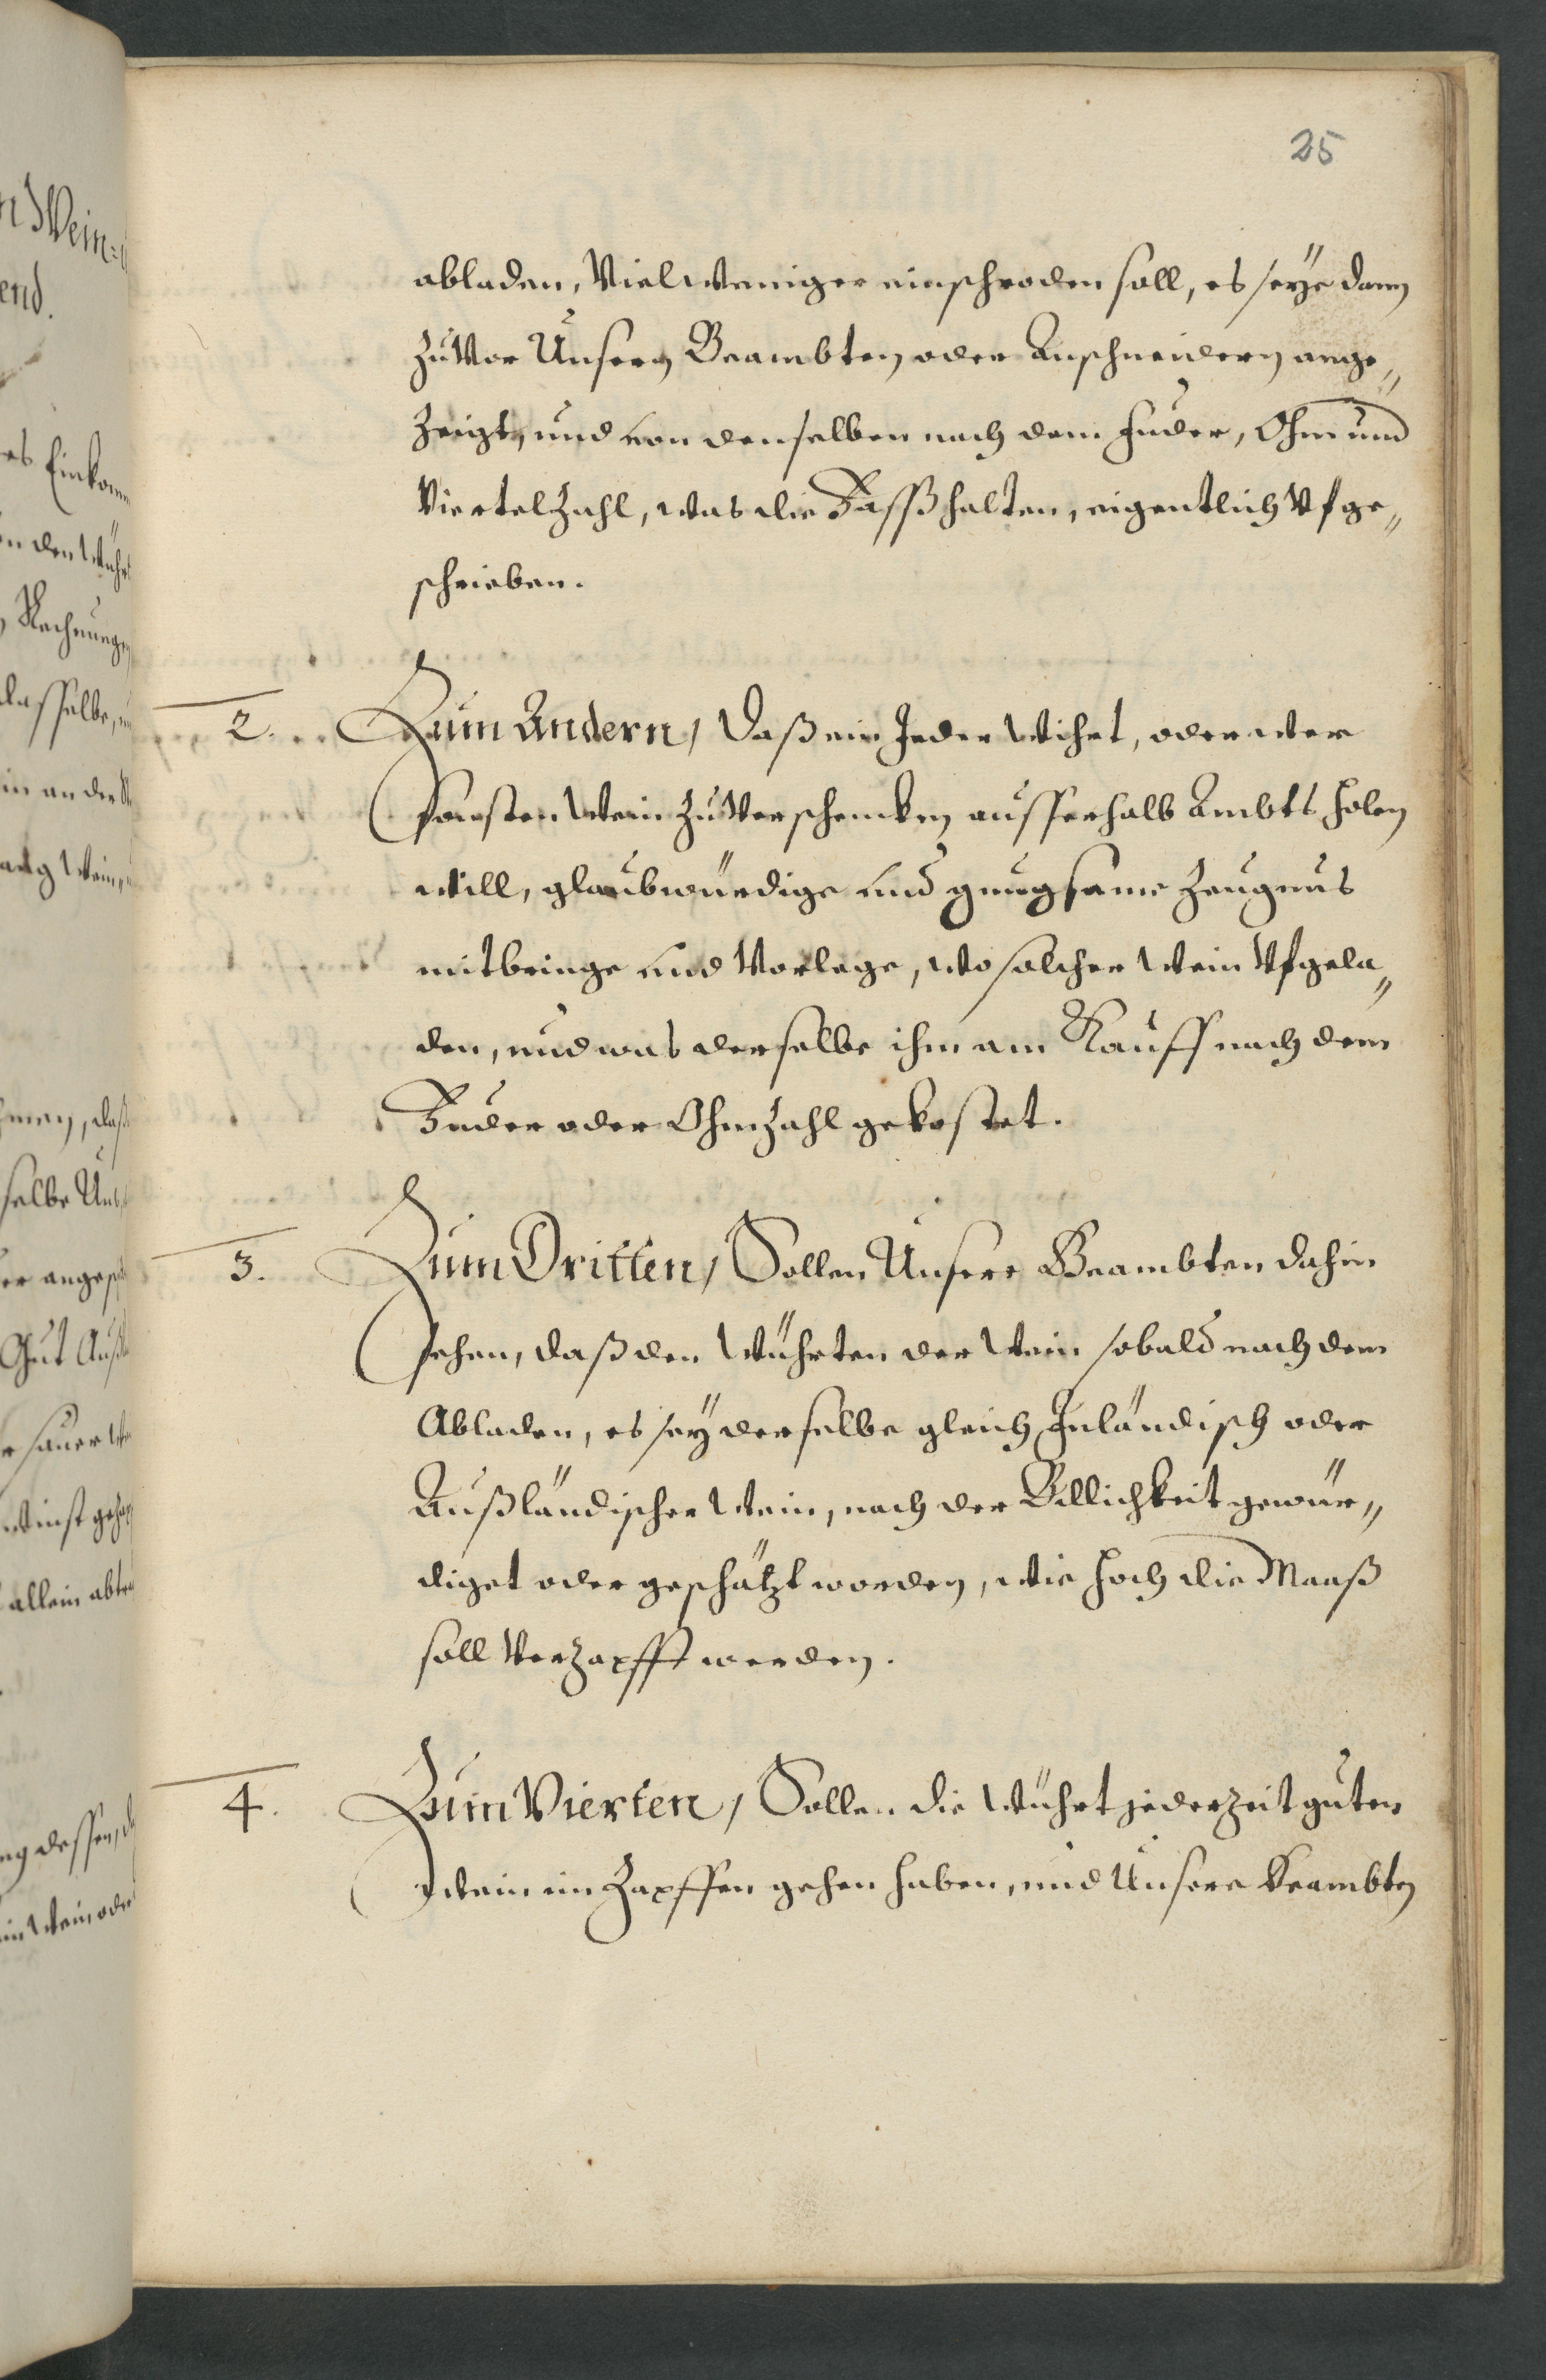 25
abladen, Vielweniger einschroden soll, es seÿe dann
zuvor Unsern Beambten oder Anschneidern ange„
zeigt, und von denselben nach dem Fuder, Ohm und
Viertelzahl, was die Fässß halten, eigentlich Vfge„
schrieben.
2. Zum Andern, Daß ein Jeder Wihrt, oder wer
sonsten Wein zuverschencken ausserhalb Ambts holen
will, glaubwürdige und gnugsame Zeugnus
mitbringe und Vorlege, wo solcher Wein Vfgela„
den, und was derselbe ihm am Kauff nach dem
Fuder oder Ohmzahl gekostet.
3. Zum Dritten, Sollen Unsere Beambten dahin
sehen, daß den Würhten der Wein sobald nach dem
Abladen, es seÿ derselbe gleich Inländisch oder
Außländischer Wein, nach der Billichkeit gewür„
diget oder geschätzt worden, wie hoch die Maaß
soll Verzapfft werden.
4. Zum Vierten, Sollen die Würht jederzeit guten
Wein im Zapffen gehen haben, und Unsere Beambten